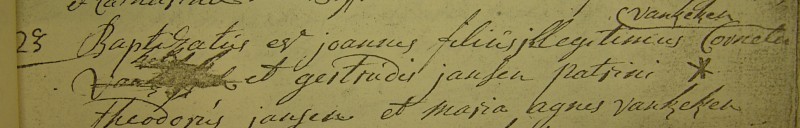 vankeken
23 Baptizatus est joannes filius illegitimus Corneli
et gertrudis jansen patrini *
theodorus jansen et maria agnes vankeken